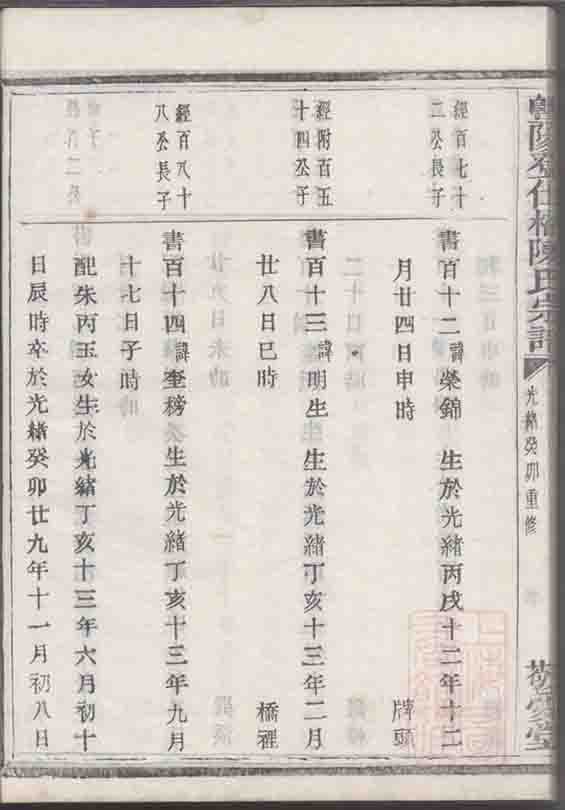 陽桼仕橋陳氏宗譜
光緒癸卯重修
敬愛堂
經百七十
二公長子
書百十二諱榮錦 生於光緒丙戌十二年十二
月廿四日申時 牌頭
經附百五
十四公子
書百十三諱明生 生於光緒丁亥十三年二月
廿八日巳時 橋裡
經百八十
八公長子
書百十四諱奎榜 生於光緒丁亥十三年九月
十七日子時
配朱丙玉女生於光緒丁亥十三年六月初十
日辰時卒於光緒癸卯廿九年十一月初八日